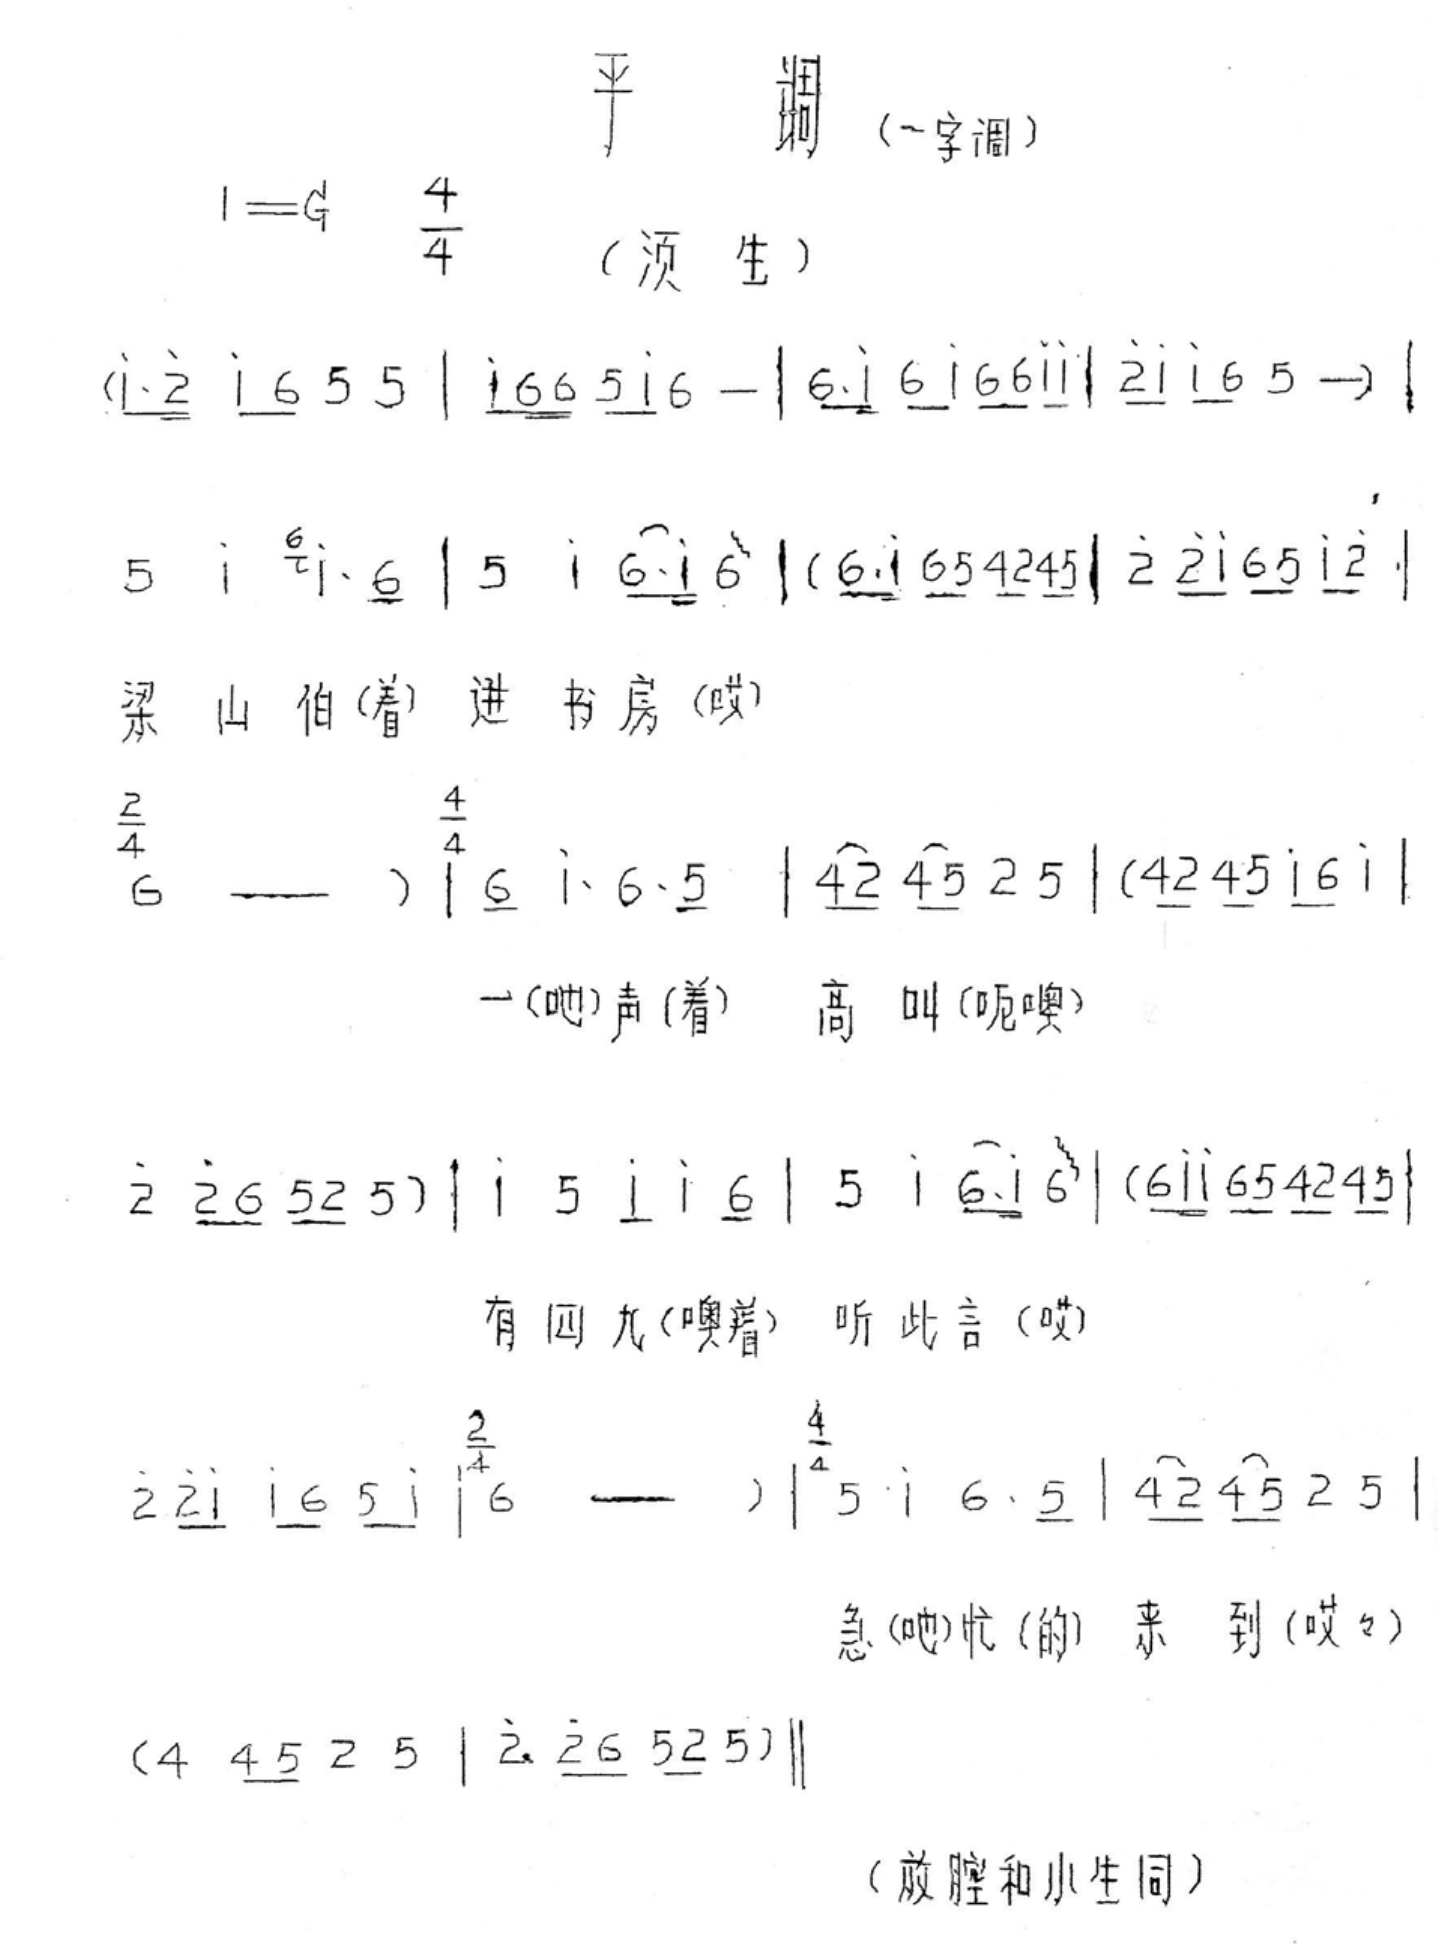 平 调 (一字调)
1=G 4/4 (须生)
(i̇·2̇ i̇6 5 5 | i̇66 5i̇ 6 — | 6·i̇ 6 i̇ 66 i̇i̇ | 2̇i̇ i̇6 5 —) |
5 i̇ 6i̇· 6 | 5 i̇ 6·i̇ 6 | (6·i̇ 65 42 45 | 2̇ 2̇i̇ 65 i̇2̇ |
梁 山 伯(着) 进 书 房 (哎)
2/4 6 — ) | 4/4 6 i̇· 6·5 | 42 45 2 5 | (42 45 i̇6 i̇ |
一(吔)声(着) 高 叫(呃噢)
2̇ 2̇6 52 5) | i̇ 5 i̇ i̇ 6 | 5 i̇ 6·i̇ 6 | (6i̇i̇ 65 42 45 |
有 四 九(噢着) 听 此 言 (哎)
2̇ 2̇i̇ i̇6 5i̇ | 2/4 6 — ) | 4/4 5·i̇ 6·5 | 42 45 2 5 |
急(吔)忙(的) 来 到(哎々)
(4 45 2 5 | 2̇· 2̇6 52 5) ‖
(放腔和小生同)